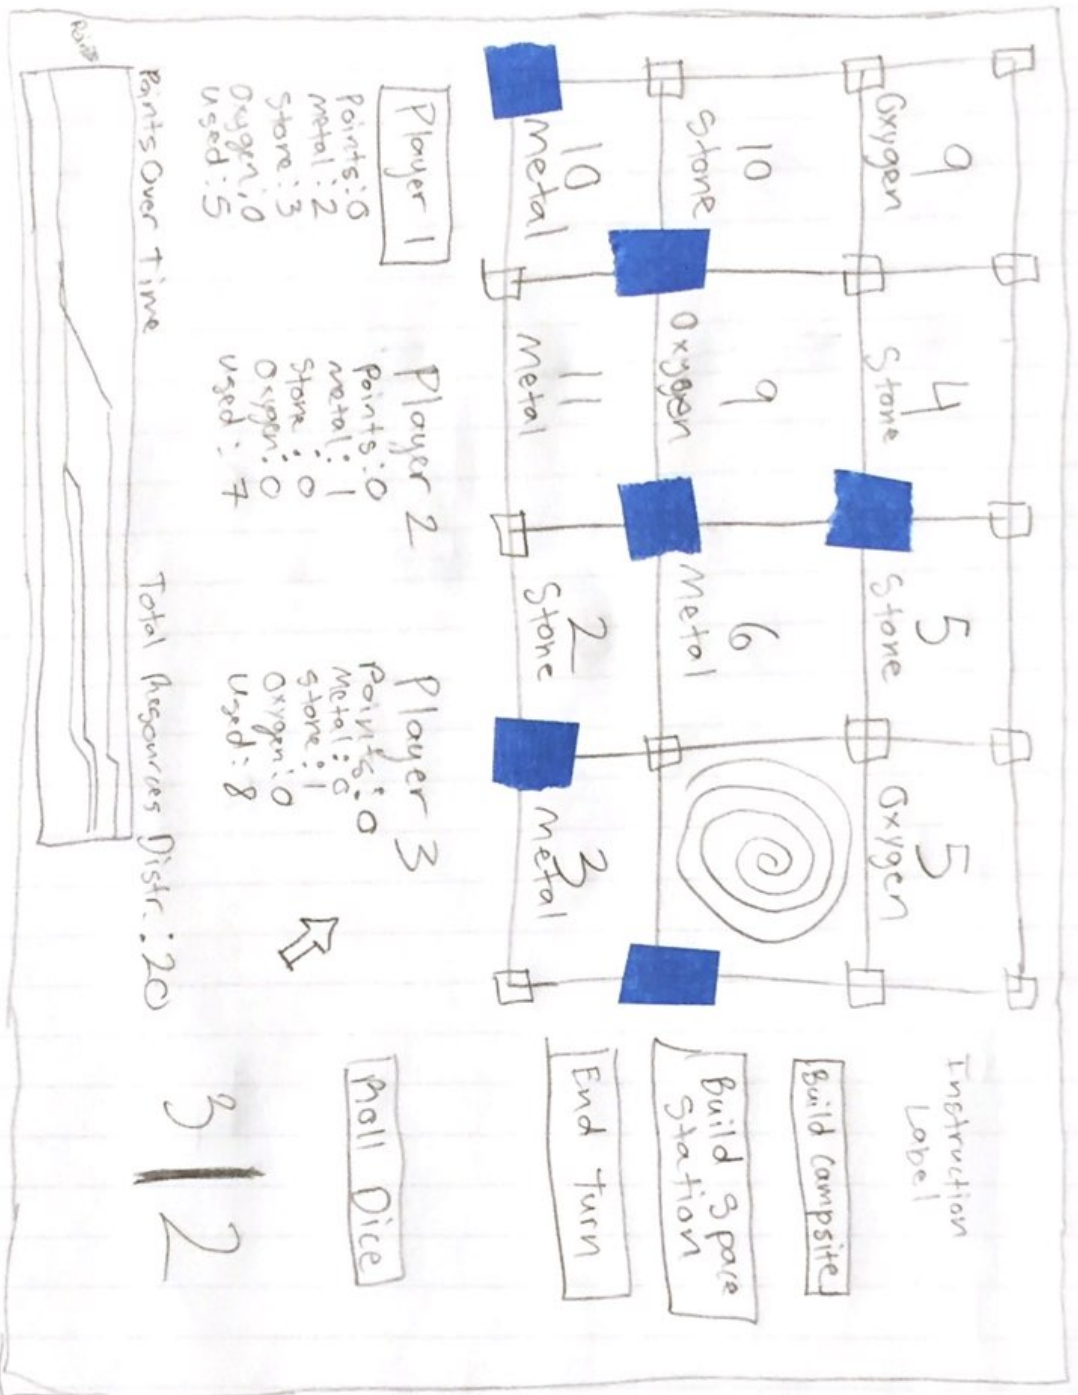 9
Oxygen
4
Stone
5
Stone
5
Oxygen
10
Stone
9
Oxygen
6
Metal
10
Metal
11
Metal
2
Stone
3
Metal
Instruction
Label
Build Campsite
Build Space
Station
End Turn
Roll Dice
3|2
Player 1
Points:0
Metal:2
Stone:3
Oxygen:0
Used:5
Player 2
Points:0
Metal:1
Stone:0
Oxygen:0
Used:7
Player 3
Points:0
Metal:0
Stone:1
Oxygen:0
Used:8
Points Over Time
Total Resources Distr.:20
Points